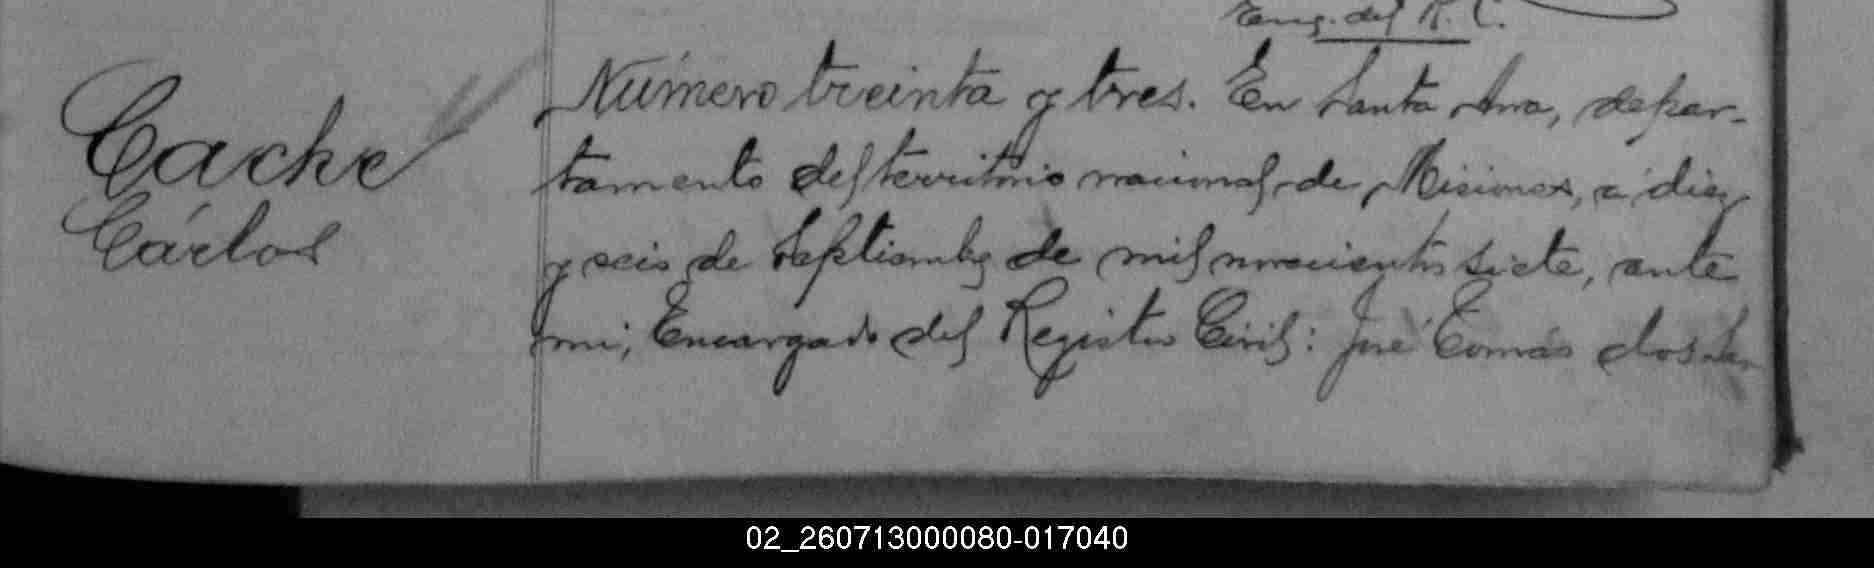 Enc. del R. C.
Cache
Cárlos
Número treinta y tres. En Santa Ana, depar-
tamento del territorio nacional de Misiones, a diez
y seis de Septiembre de mil novecientos siete, ante
mi, Encargado del Registro Civil: José Tomás dos San
02_260713000080-017040